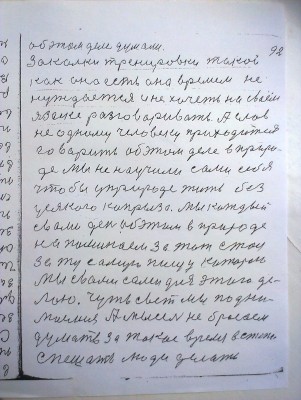 98
об этом деле думали.
Закалки тренировки такой
как она есть она времем не
нуждается и не хочеть на своём
языке разговаривать А слов
не одному человеку приходится
говорить об этом деле в природе
де мы не научили сами себя
чтобы у природе жить без
усякого каприза. Мы каждый
свой ден об этом в природе
напоминаем За тот стол
За ту самую пищу которою
Мы свами сами для этого де-
лаю. Чуть свет мы подни-
маимся А мысел не бросаем
думать За такое время
спешать люди делать